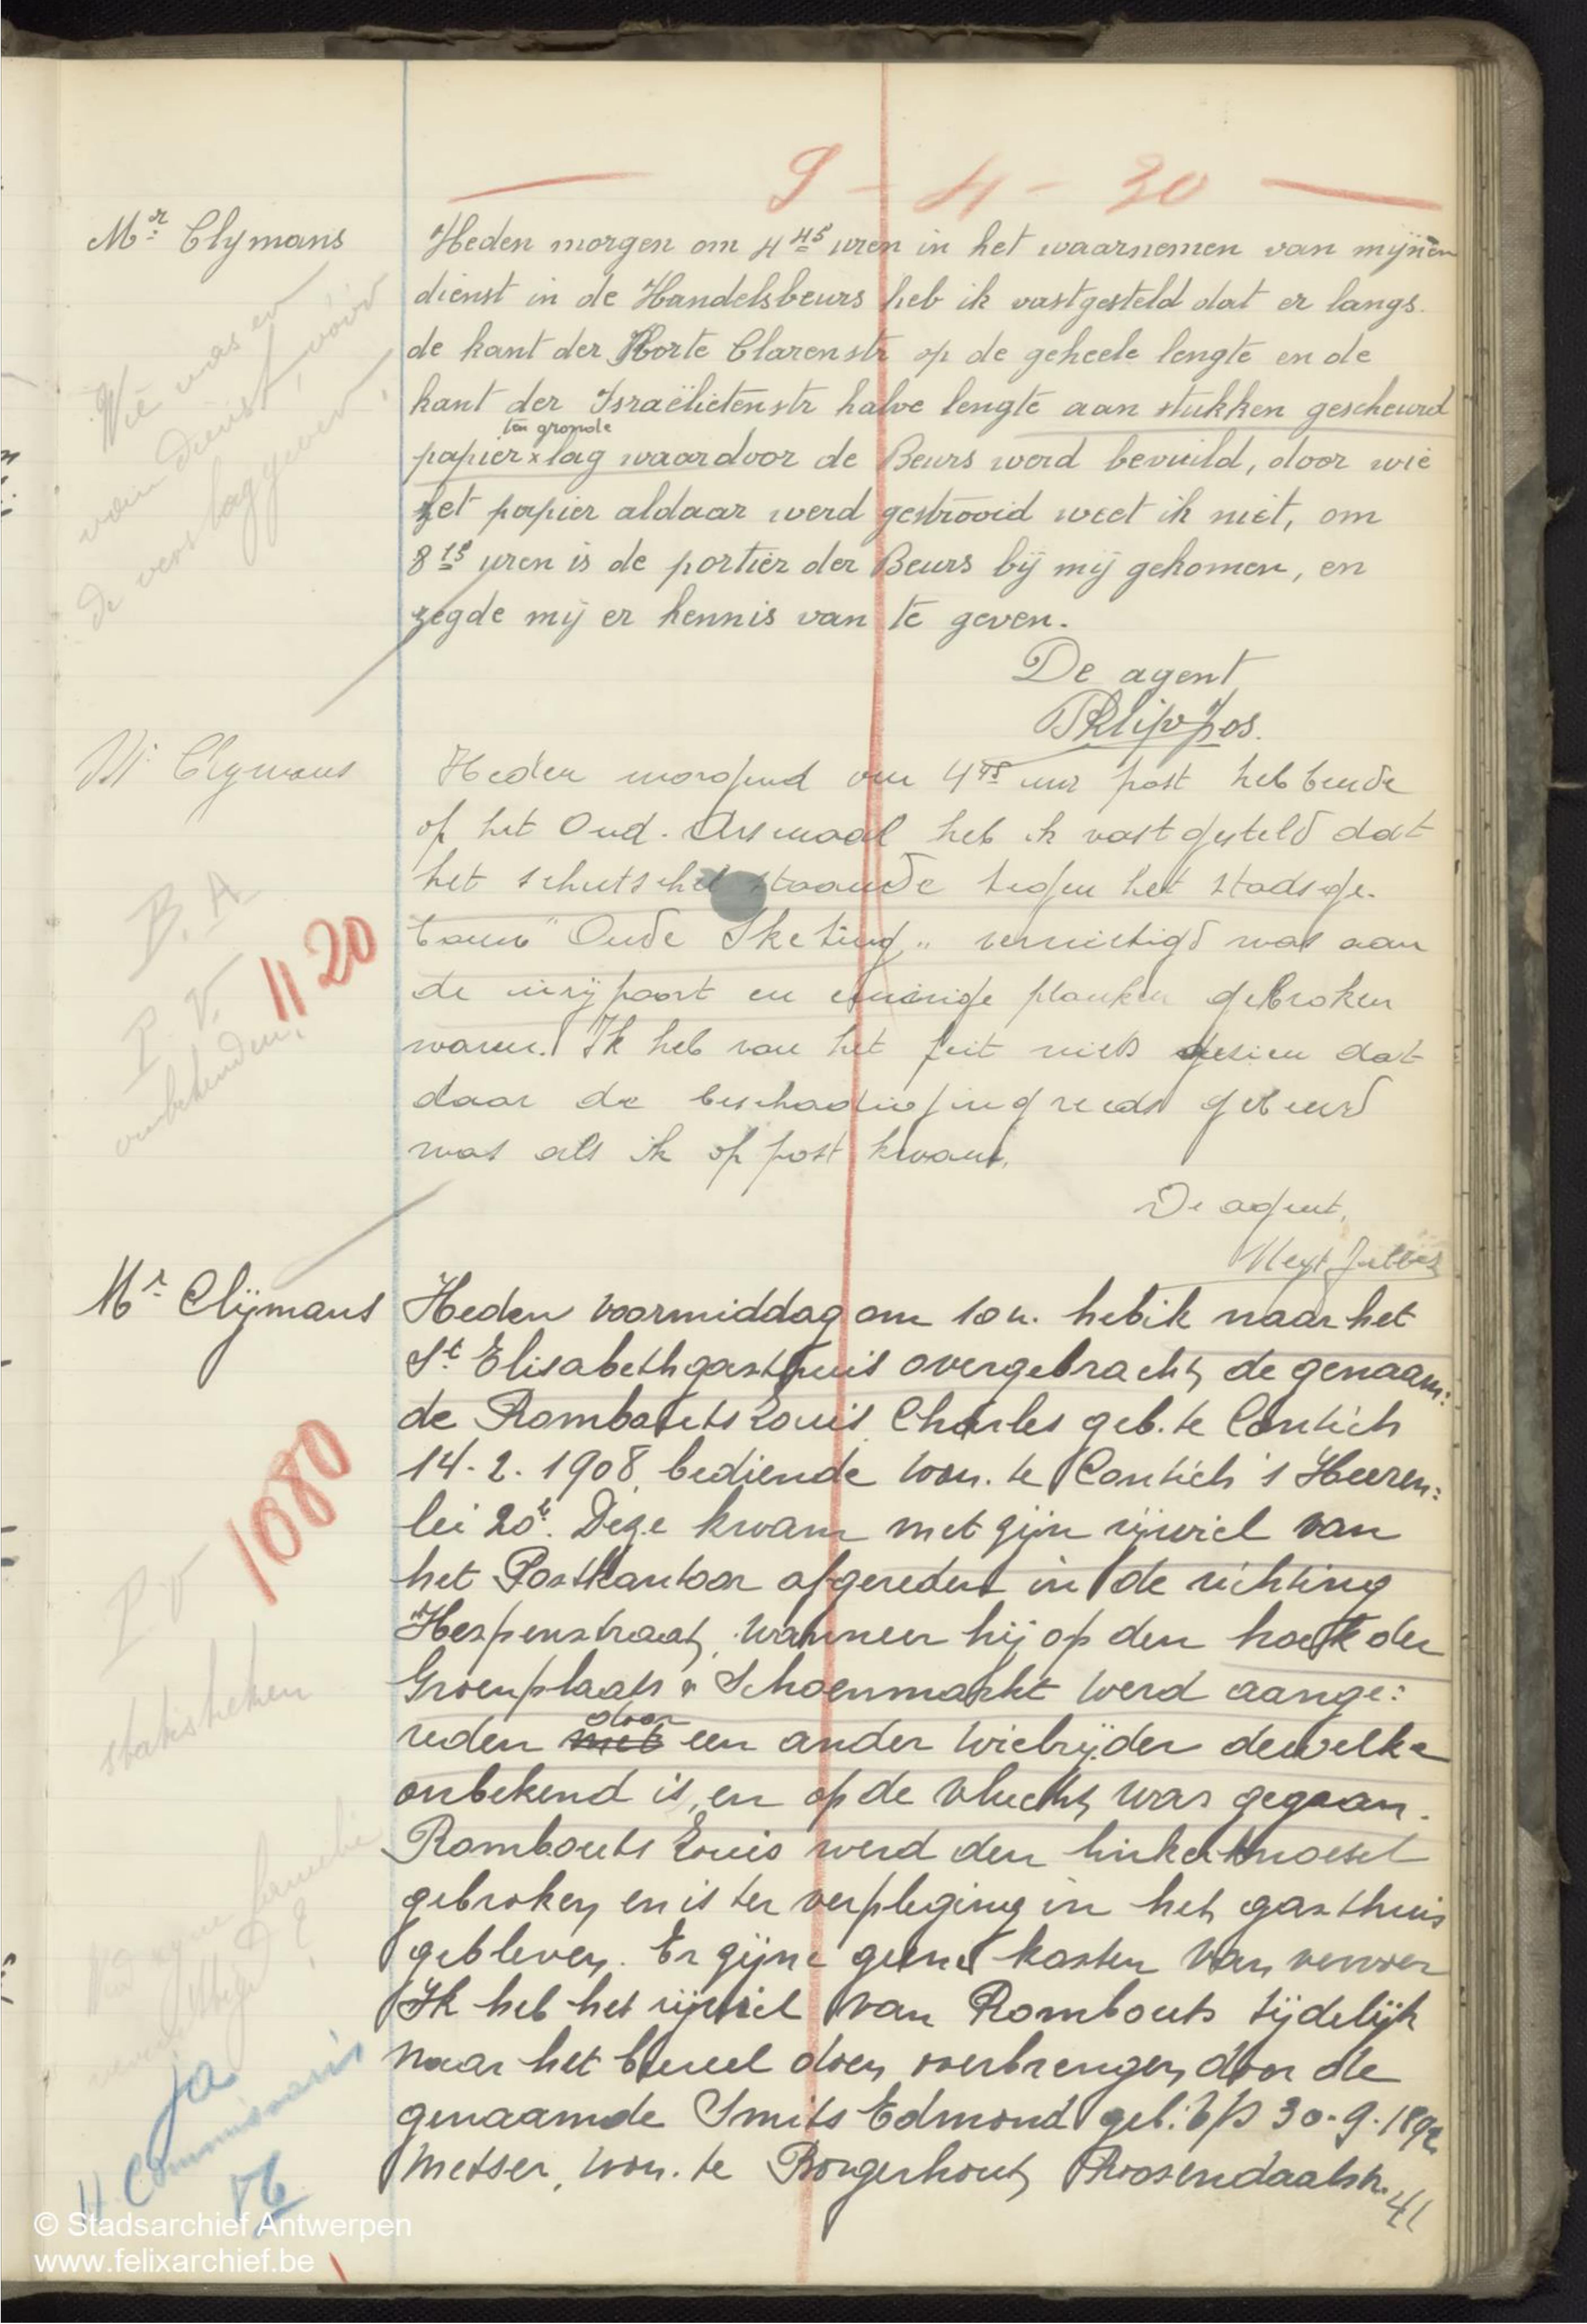 9 - 4 - 30
Mr Clymans
Heden morgen om 4 45 uren in het waarnemen van mijnen
dienst in de Handelsbeurs heb ik vastgesteld dat er langs
de kant der Korte Clarenstr op de geheele lengte en de
kant der Israëlietenstr halve lengte aan stukken gescheurd
ten gronde
papier x lag waardoor de Beurs werd bevuild, door wie
het papier aldaar werd gestrooid weet ik niet, om
8 15 uren is de portier der Beurs bij mij gekomen, en
zegde mij er kennis van te geven.
De agent
Wie was er
van dienst, vóór
de verslaggever?
Mr Clymans
Heden morgend om 4 45 uur post hebbende
op het Oud. Arsenaal heb ik vastgesteld dat
het schutsel staande tegen het stadsge-
bouw "Oude Sketing" vernietigd was aan
de inrijpoort en eenige planken gebroken
waren. Ik heb van het feit niets gezien dat
daar de beschadiging reeds gebeurd
was als ik op post kwam.
De agent,
B. A
P. V. 1120
onbekenden.
Mr Clijmans
Heden voormiddag om 10 u. heb ik naar het
St Elisabethgasthuis overgebracht, de genaam:
de Rombouts Louis Charles geb. te Contich
14. 2. 1908, bediende won. te Contich 's Heeren:
lei 20. Deze kwam met zijn rijwiel van
het Postkantoor afgereden in de richting
Hespenstraat, wanneer hij op den hoek der
Groenplaats & Schoenmarkt werd aange:
door
reden met een ander wielrijder dewelke
onbekend is, en op de vlucht was gegaan.
Rombouts Louis werd den linker knoesel
gebroken en is ter verpleging in het gasthuis
gebleven. Er zijn geene kosten van vervoer
Ik heb het rijwiel van Rombouts tijdelijk
naar het bureel doen overbrengen door de
genaamde Smits Edmond geb. b/s 30. 9. 1892
metser, won. te Borgerhout, Roosendaalstr. 41
P V 1080
statistieken
familie
?
ja
H Commissaris
© Stadsarchief Antwerpen
www.felixarchief.be